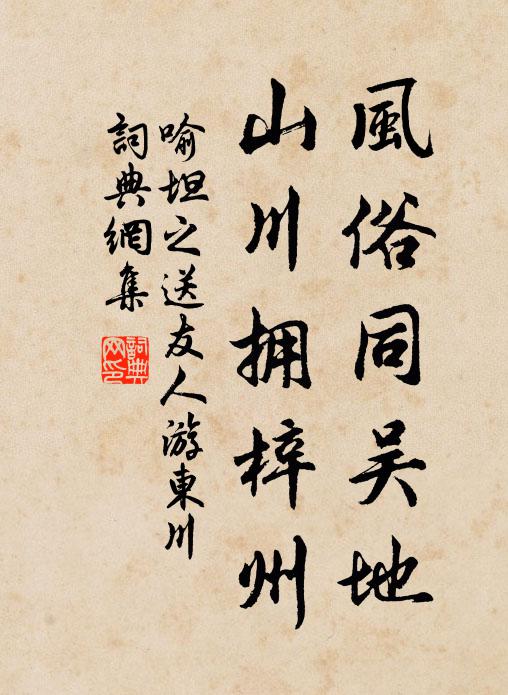 風俗同吴地
山川拥梓州
喻坦之送友人游東川
詞典網集
詞典网印